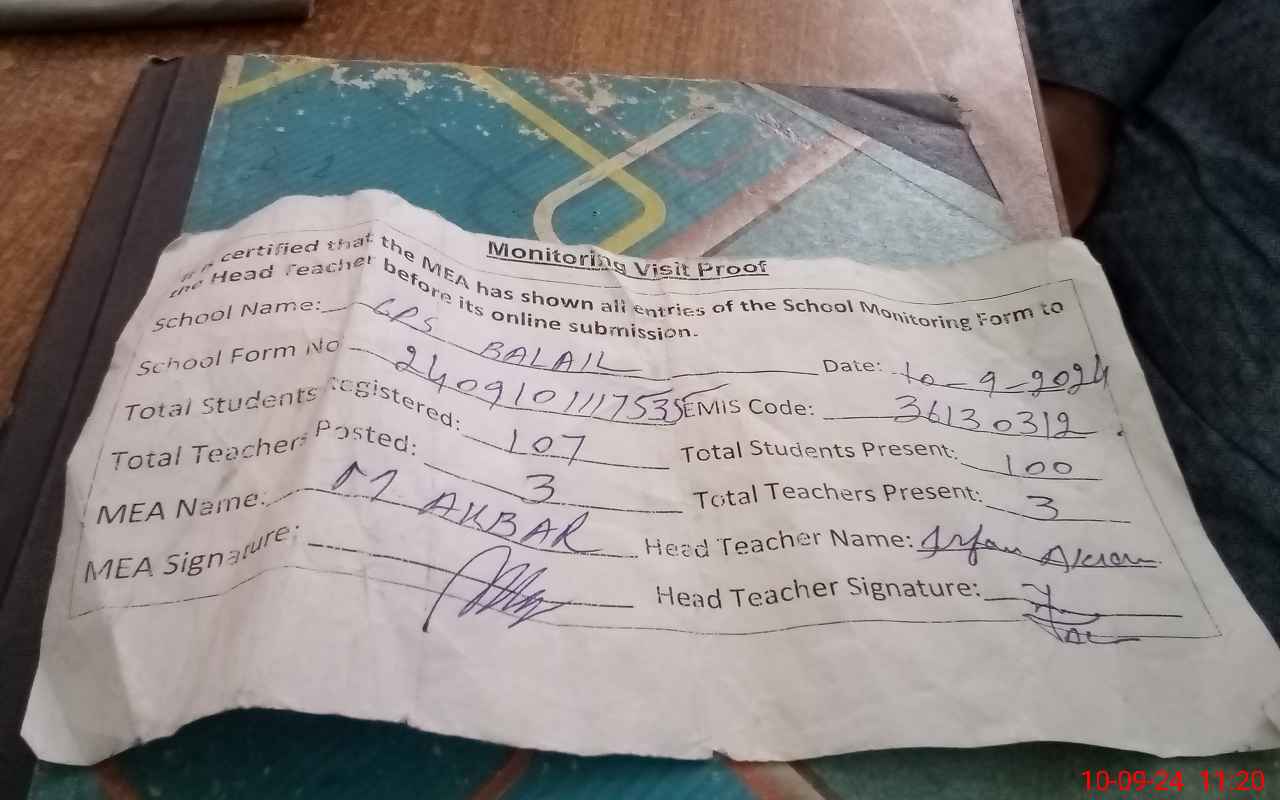 Monitoring Visit Proof
It is certified that the MEA has shown all entries of the School Monitoring Form to
the Head Teacher before its online submission.
School Name: GPS BALAIL Date: 10-9-2024
School Form No 2409101117535 EMIS Code: 36130312
Total Students Registered: 107 Total Students Present: 100
Total Teachers Posted: 3 Total Teachers Present: 3
MEA Name: M AKBAR Head Teacher Name: Irfan Akram
MEA Signature: Head Teacher Signature:
10-09-24 11:20